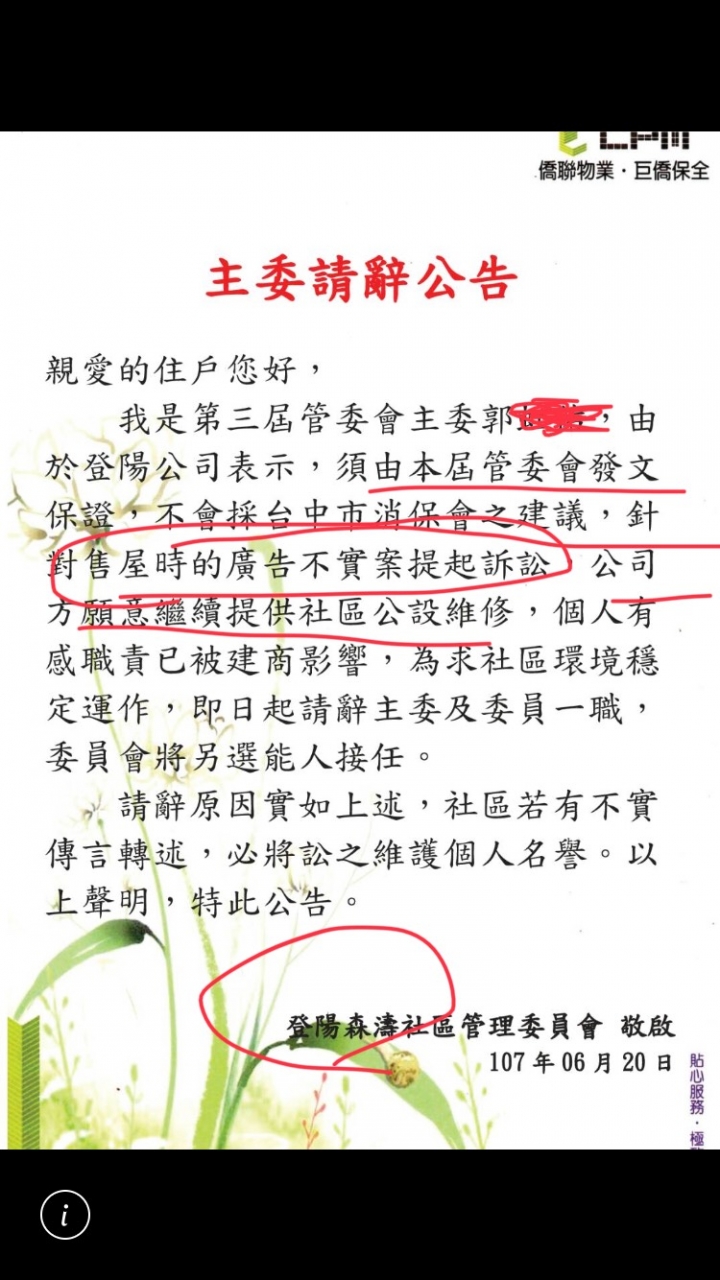 僑聯物業·巨僑保全
主委請辭公告
親愛的住戶您好，
我是第三屆管委會主委郭，由
於登陽公司表示，須由本屆管委會發文
保證，不會採台中市消保會之建議，針
對售屋時的廣告不實案提起訴訟，公司
方願意繼續提供社區公設維修，個人有
感職責已被建商影響，為求社區環境穩
定運作，即日起請辭主委及委員一職，
委員會將另選能人接任。
請辭原因實如上述，社區若有不實
傳言轉述，必將訟之維護個人名譽。以
上聲明，特此公告。
登陽森濤社區管理委員會 敬啟
107年06月20日
貼心服務·極